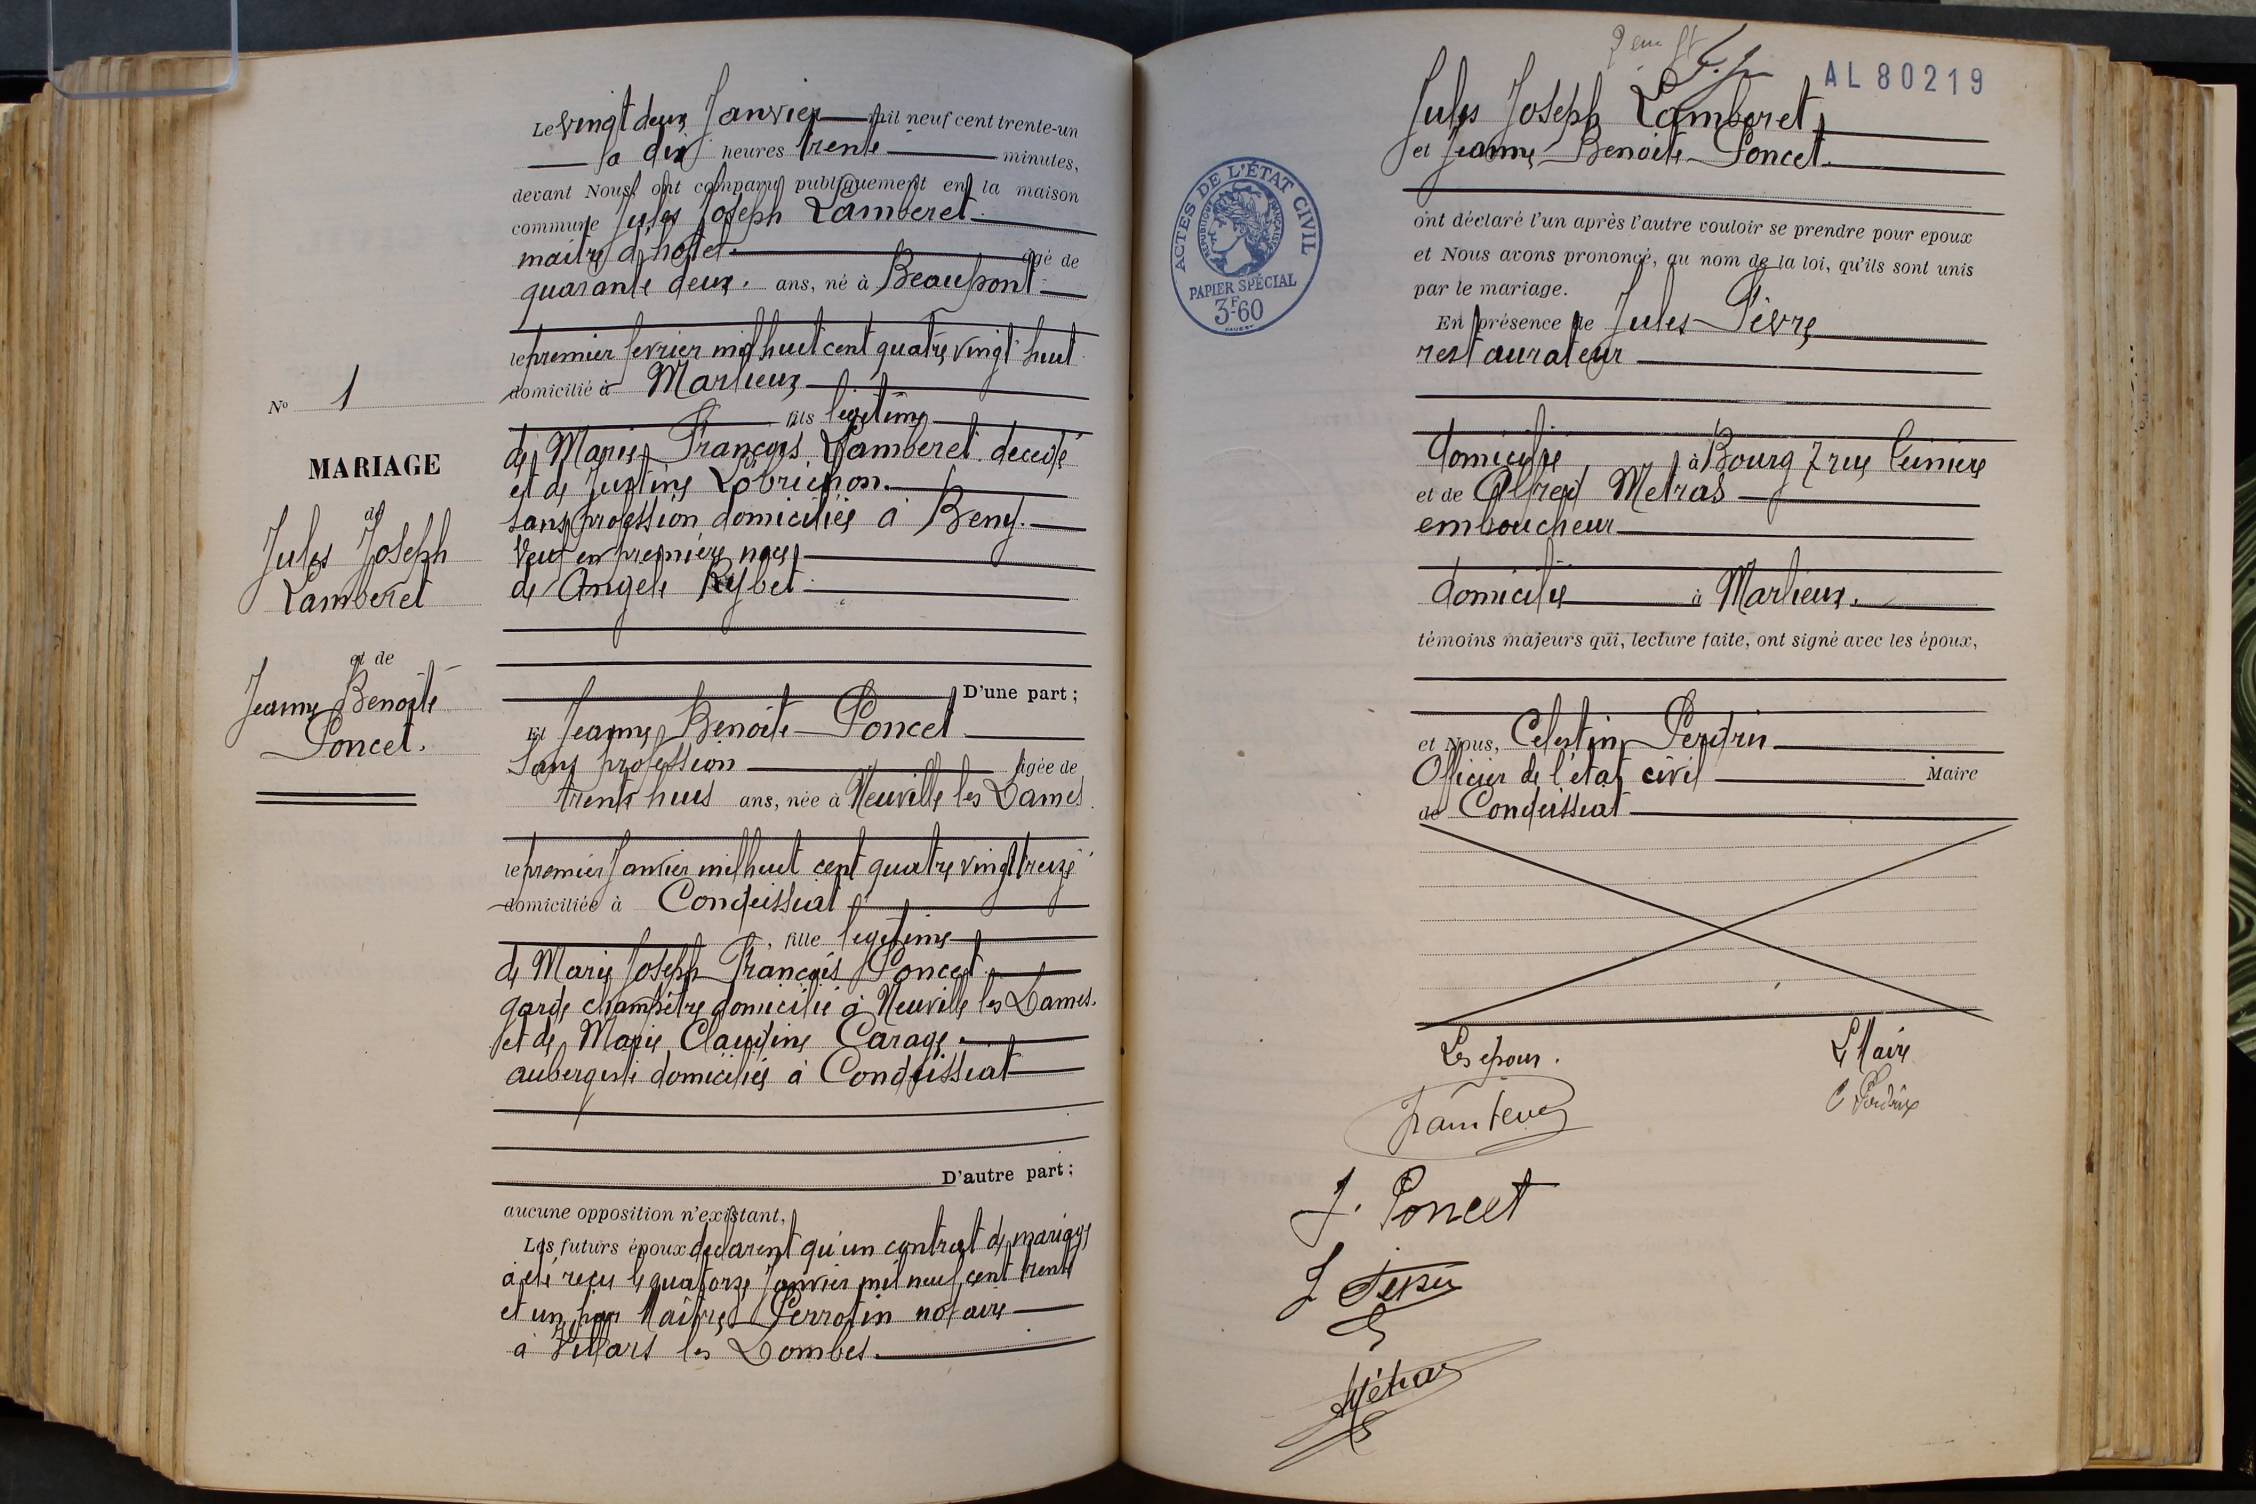 N° 1
MARIAGE
de
Jules Joseph
Lamberet
et de
Jeanne Benoite
Poncet.
Le vingt deux Janvier mil neuf cent trente-un
à dix heures trente minutes,
devant Nous ont comparu publiquement en la maison
commune Jules Joseph Lamberet.
maitre d'hotel âgé de
quarante deux. ans, né à Beaupont
le premier fevrier mil huit cent quatre vingt huit
domicilié à Marlieux
fils legitime
de Marie François Lamberet decedé
et de Justine Lobrichon.
sans profession domiciliée à Beny.
Veuf en première noces
de Angele Rybet.
D'une part;
Et Jeanne Benoite Poncet
Sans profession âgée de
trente huit ans, née à Neuville les Dames.
le premier Janvier mil huit cent quatre vingt treize
domiciliée à Condeissiat
, fille legitime
de Marie Joseph François Poncet
garde champêtre domicilié à Neuville les Dames.
et de Marie Claudine Carage.
aubergiste domiciliée à Condeissiat
D'autre part;
aucune opposition n'existant,
Les futurs époux declarent qu'un contrat de mariage
à été reçu le quatorze Janvier mil neuf cent trente
et un par Maître Perrotin notaire
à Villars les Dombes.
AL 80219
Jules Joseph Lamberet
et Jeanne Benoite Poncet.
ACTES DE L'ÉTAT CIVIL
RÉPUBLIQUE FRANÇAISE
PAPIER SPÉCIAL
3F60
ont déclaré l'un après l'autre vouloir se prendre pour epoux
et Nous avons prononcé, au nom de la loi, qu'ils sont unis
par le mariage.
En présence de Jules Fèvre
restaurateur
domicilié à Bourg 7 rue
et de Alfred Metras
emboucheur
domicilié à Marlieux.
témoins majeurs qui, lecture faite, ont signé avec les époux,
et Nous, Celestin Perdrix
Officier de l'état civil Maire
de Condeissiat
Les epoux. Le Maire
C Perdrix
J. Poncet
Métras